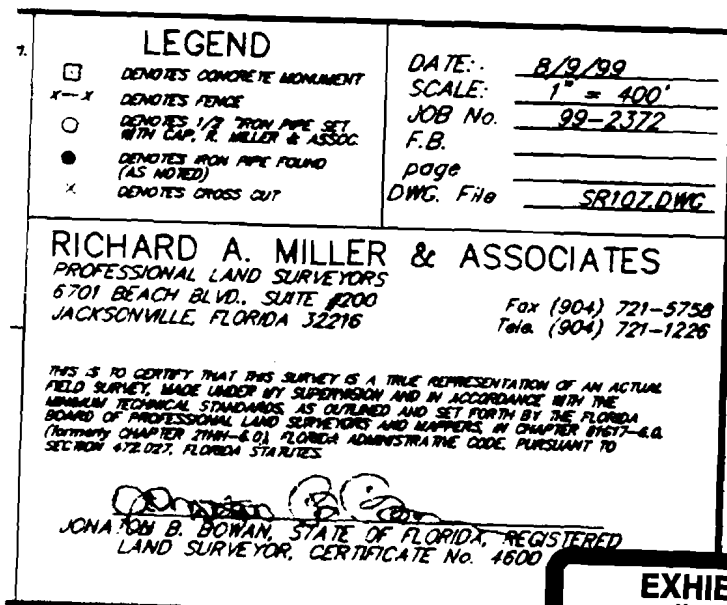 7.
LEGEND
DENOTES CONCRETE MONUMENT
x--x DENOTES FENCE
DENOTES 1/2 "IRON PIPE SET
WITH CAP, R. MILLER & ASSOC.
DENOTES IRON PIPE FOUND
(AS NOTED)
x DENOTES CROSS CUT
DATE: 8/9/99
SCALE: 1" = 400'
JOB No. 99-2372
F.B.
page
DWG. File SR107.DWG
RICHARD A. MILLER & ASSOCIATES
PROFESSIONAL LAND SURVEYORS
6701 BEACH BLVD., SUITE #200
JACKSONVILLE, FLORIDA 32216
Fax (904) 721-5758
Tele. (904) 721-1226
THIS IS TO CERTIFY THAT THIS SURVEY IS A TRUE REPRESENTATION OF AN ACTUAL
FIELD SURVEY, MADE UNDER MY SUPERVISION AND IN ACCORDANCE WITH THE
MINIMUM TECHNICAL STANDARDS, AS OUTLINED AND SET FORTH BY THE FLORIDA
BOARD OF PROFESSIONAL LAND SURVEYORS AND MAPPERS, IN CHAPTER 61G17-6.0,
(formerly CHAPTER 21HH-6.0), FLORIDA ADMINISTRATIVE CODE, PURSUANT TO
SECTION 472.027, FLORIDA STATUTES.
B. BOWAN, STATE OF FLORIDA, REGISTERED
LAND SURVEYOR, CERTIFICATE No. 4600
EXHIB